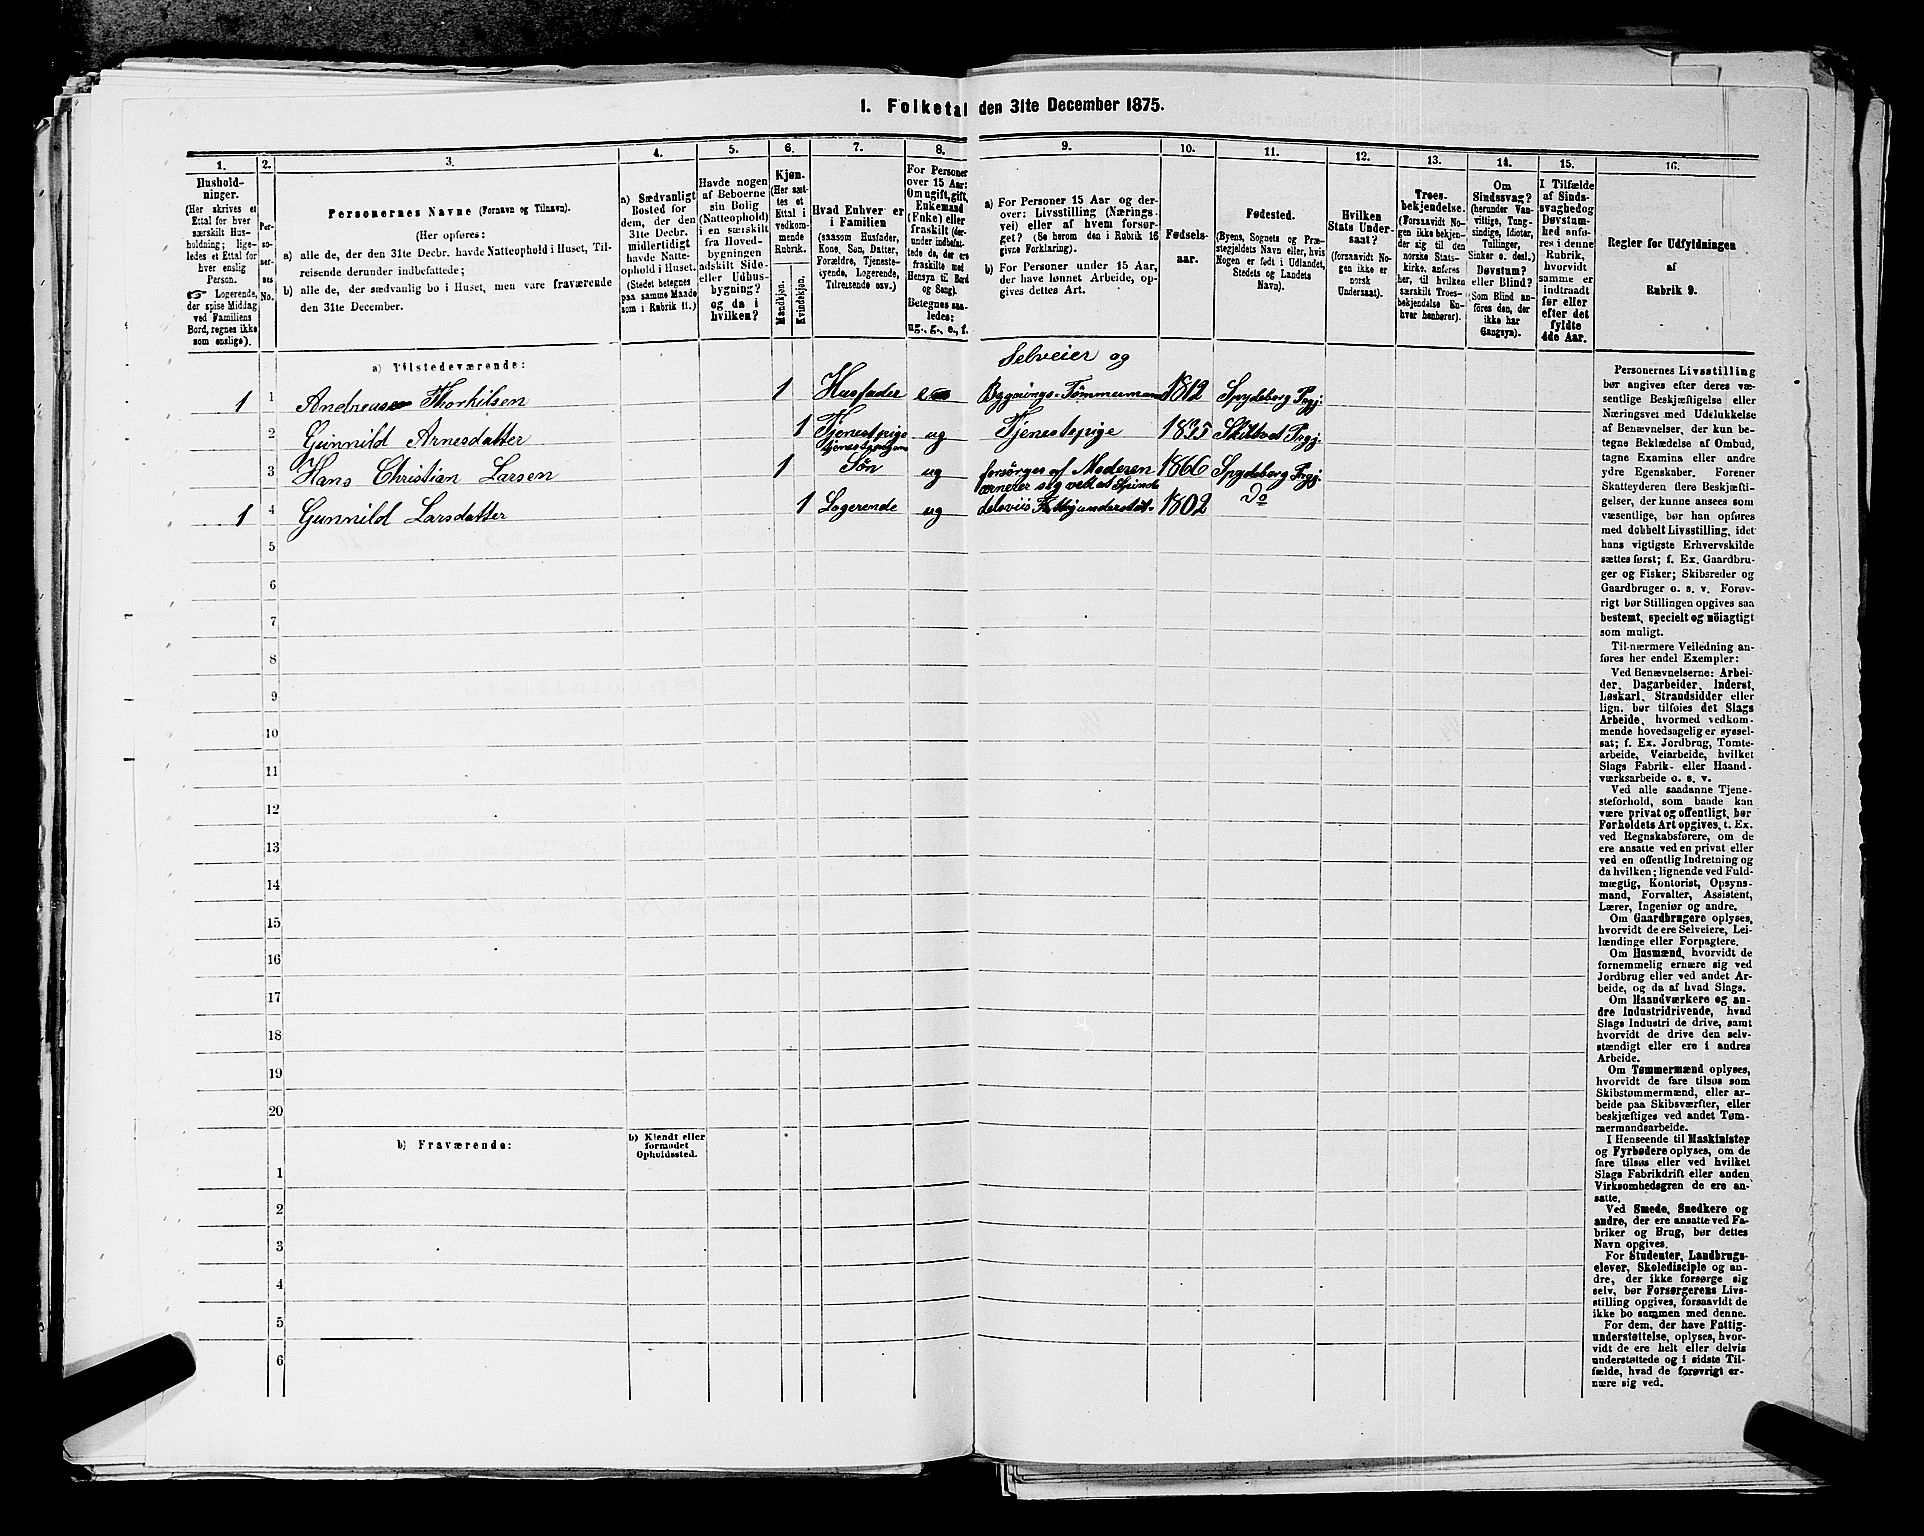 1. Folketal den 31te December 1875.
1.
2.
3.
4.
5.
6.
7.
8.
9.
10.
11.
12.
13.
14.
15.
16.
Hushold-
ninger.
(Her skrives et
Ettal for hver
særskilt Hus-
holdning; lige-
ledes et Ettal for
hver enslig
Person.
☞ Logerende,
der spise Middag
ved Familiens
Bord, regnes ikke
som enslige).
Per-
so-
ner-
nes
No.
Personernes Navne (Fornavn og Tilnavn).
(Her opføres:
a) alle de, der den 31te Decbr. havde Natteophold i Huset, Til-
reisende derunder indbefattede;
b) alle de, der sædvanlig bo i Huset, men vare fraværende
den 31te December.
a) Sædvanligt
Bosted for
dem, der den
31te Decbr.
midlertidigt
havde Natte-
ophold i Huset.
(Stedet betegnes
paa samme Maade
som i Rubrik 11.)
Havde nogen
af Beboerne
sin Bolig
(Natteophold)
i en særskilt
fra Hoved-
bygningen
adskilt Side-
eller Udhus-
bygning?
og da i
hvilken?
Kjøn.
(Her sæt-
tes et
Ettal i
vedkom-
mende
Rubrik.
Mandkjøn.
Kvindekjøn.
Hvad Enhver er
i Familien
(saasom Husfader,
Kone, Søn, Datter,
Forældre, Tjeneste-
tyende, Logerende,
Tilreisende osv.)
For Personer
over 15 Aar:
Om ugift, gift,
Enkemand
(Enke) eller
fraskilt (der-
under indbefat-
tede de, der ere
fraskilte med
Hensyn til Bord
og Seng).
Betegnes saa-
ledes:
ug., g., e., f.
a) For Personer 15 Aar og der-
over: Livsstilling (Nærings-
vei) eller af hvem forsør-
get? (Se herom den i Rubrik 16
givne Forklaring).
b) For Personer under 15 Aar,
der have lønnet Arbeide, op-
gives dettes Art.
Fødsels-
aar.
Fødested.
(Byens, Sognets og Præ-
stegjeldets Navn eller, hvis
Nogen er født i Udlandet,
Stedets og Landets
Navn).
Hvilken
Stats Under-
saat?
(forsaavidt No-
gen ikke er
norsk
Undersaat).
Troes-
bekjendelse.
(Forsaavidt No-
gen ikke bekjen-
der sig til den
norske Stats-
kirke, anføres
her, til hvilken
særskilt Troes-
bekjendelse En-
hver henhører).
Om
Sindssvag?
(herunder Van-
vittige, Tung-
sindige, Idioter,
Tullinger,
Sinker o. desl.)
Døvstum?
eller Blind?
(Som Blind an-
føres den, der
ikke har
Gangsyn).
I Tilfælde
af Sinds-
svaghed og
Døvstum-
hed anfø-
res i denne
Rubrik,
hvorvidt
samme er
indtraadt
før eller
efter det
fyldte
4de Aar.
Regler for Udfyldningen
af
Rubrik 9.
a) Tilstedeværende:
Selveier og
1 1 Andreas Thorkilsen 1 Husfader e Bygnings-Tömmermand 1812 Spydeberg Prgj.
2 Gunnild Arnesdatter 1 Tjenestpige ug Tjenestepige 1835 Skibtvet Prgj.
3 Hans Christian Larsen 1 Søn ug forsörges af Moderen 1866 Spydeberg Prgj.
ernerer sig ved at Spinde
1 4 Gunnild Larsdatter 1 Logerende ug delviis Fattigunderstöt. 1802 Do
5
6
7
8
9
10
11
12
13
14
15
16
17
18
19
20
b) Fraværende:
b) Kjendt eller
formodet
Opholdssted.
1
2
3
4
5
6
Personernes Livsstilling
bør angives efter deres væ-
sentlige Beskjæftigelse eller
Næringsvei med Udelukkelse
af Benævnelser, der kun be-
tegne Beklædelse af Ombud,
tagne Examina eller andre
ydre Egenskaber. Forener
Skatteyderen flere Beskjæfti-
gelser, der kunne ansees som
væsentlige, bør han opføres
med dobbelt Livsstilling, idet
hans vigtigste Erhvervskilde
sættes først; f. Ex. Gaardbru-
ger og Fisker; Skibsreder og
Gaardbruger o. s. v. Forøv-
rigt bør Stillingen opgives saa
bestemt, specielt og nøiagtigt
som muligt.
Til nærmere Veiledning an-
føres her endel Exempler:
Ved Benævnelserne: Arbei-
der, Dagarbeider, Inderst,
Løskarl, Strandsidder eller
lign. bør tilføies det Slags
Arbeide, hvormed vedkom-
mende hovedsagelig er syssel-
sat; f. Ex. Jordbrug, Tomte-
arbeide, Veiarbeide, hvilket
Slags Fabrik- eller Haand-
værksarbeide o. s. v.
Ved alle saadanne Tjene-
steforhold, som baade kan
være privat og offentligt, bør
Forholdets Art opgives, t. Ex.
ved Regnskabsførere, om de
ere ansatte ved en privat eller
ved en offentlig Indretning og
da hvilken; lignende ved Fuld-
mægtig, Kontorist, Opsyns-
mand, Forvalter, Assistent,
Lærer, Ingeniør og andre.
Om Gaardbrugere oplyses,
hvorvidt de ere Selveiere, Lei-
lændinge eller Forpagtere.
Om Husmænd, hvorvidt de
fornemmelig ernære sig ved
Jordbrug eller ved andet Ar-
beide, og da af hvad Slags.
Om Haandværkere og an-
dre Industridrivende, hvad
Slags Industri de drive, samt
hvorvidt de drive den selv-
stændigt eller ere i andres
Arbeide.
Om Tømmermænd oplyses,
hvorvidt de fare tilsøs som
Skibstømmermænd, eller ar-
beide paa Skibsværfter, eller
beskjæftiges ved andet Tøm-
mermandsarbeide.
I Henseende til Maskinister
og Fyrbødere oplyses, om de
fare tilsøs eller ved hvilket
Slags Fabrikdrift eller anden
Virksomhedsgren de ere an-
satte.
Ved Smede, Snedkere og
andre, der ere ansatte ved Fa-
briker og Brug, bør dettes
Navn opgives.
For Studenter, Landbrugs-
elever, Skoledisciple og an-
dre, der ikke forsørge sig
selv, bør Forsørgerens Livs-
stilling opgives, forsaavidt de
ikke bo sammen med denne.
For dem, der have Fattig-
understøttelse, oplyses, hvor-
vidt de ere helt eller delvis
understøttede og i sidste Til-
fælde, hvad de forøvrigt er-
nære sig ved.